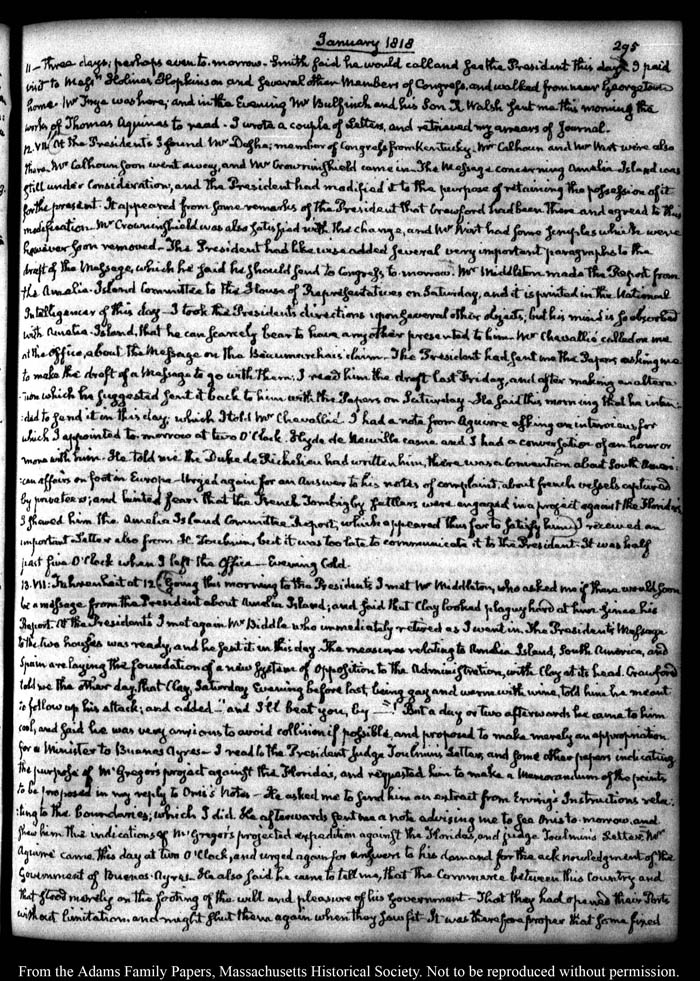 January 1818
295
11 – Three days; perhaps even to-morrow – Smith said he would call and see the President this day. I paid
visit to Mess.rs Holmes, Hopkinson and several other Members of Congress, and walked from near Georgetown
home. Mr Inga was here; and in the Evening Mr Bulfinch and his Son. R. Walsh sent me this morning the
works of Thomas Aquinas to read – I wrote a couple of Letters, and retrieved my arrears of Journal.
12. VII. At the President's I found Mr Desha; member of Congress from Kentucky. Mr Calhoun and Mr Wirt were also
there. Mr Calhoun soon went away, and Mr Crowninshield came in. The Message concerning Amelia Island was
still under Consideration; and the President had modified it to the purpose of retaining the possession of it
for the present. It appeared from some remarks of the President that Crawford had been there and agreed to this
modification – Mr Crowninshield was also satisfied with the change, and Mr Wirt had some scruples which were
however soon removed – The President had likewise added several very important paragraphs to the
draft of the Message, which he said he should send to Congress to-morrow. Mr Middleton made the Report from
the Amelia-Island Committee to the House of Representatives on Saturday, and it is printed in the National
Intelligencer of this day – I took the President's directions upon several other objects; but his mind is so absorbed
with Amelia-Island, that he can scarcely bear to have any other presented to him – Mr Chevallié called on me
at the Office, about the Message on the Beaumarchais claim – The President had sent me the Papers asking me
to make the draft of a Message to go with them. I read him the draft last Friday, and after making an altera-
tion which he suggested sent it back to him with the Papers on Saturday – He said this morning that he inten-
:ded to send it in this day, which I told Mr Chevallié. I had a note from Aguirre asking an interview for
which I appointed to-morrow at two O'Clock. Hyde de Neuville came and I had a conversation of an hour or
more with him. He told me the Duke de Richelieu had written him, there was a Convention about South Ameri-
:can affairs on foot in Europe – Urged again for an Answer to his notes of complaint, about french vessels captured
by privateers; and hinted fears that the French Tombigby settlers were engaged in a project against the Floridas
I shewed him the Amelia Island Committee Report, which appeared thus far to satisfy him. I received an
important Letter also from H. Toulmin, but it was too late to communicate it to the President. It was half
past five O'Clock when I left the Office – Evening Cold.
13. VII: Fahrenheit at 12. Going this morning to the President's I met Mr Middleton, who asked me if there would soon
be a message from the President about Amelia Island; and said that Clay looked plaguy hard at him since his
Report. At the President's I met again Mr Biddle who immediately retired as I went in. The President's Message
to the two houses was ready, and he sent it in this day. The measures relating to Amelia Island, South America, and
Spain are laying the foundation of a new System of Opposition to the Administration, with Clay at its head. Crawford
told me the other day, that Clay, Saturday Evening before last, being gay and warm with wine, told him he meant
to follow up his attack; and added – "and I'll beat you, by —"! But a day or two afterwards he came to him
cool, and said he was very anxious to avoid collision if possible, and proposed to make merely an appropriation
for a Minister to Buenos Ayres – I read to the President Judge Toulmin's Letter, and some other papers indicating
the purpose of McGregor's project against the Floridas, and requested him to make a Memorandum of the points
to be proposed in my reply to Onis's Notes – He asked me to send him an extract from Erving's Instructions rela-
:ting to the boundaries; which I did. He afterwards sent me a note advising me to see Onis to-morrow, and
shew him the indications of McGregor's projected expedition against the Floridas, and judge Toulmin's Letter. Mr
Aguirre came this day at two O'Clock; and urged again for answers to his demand for the acknowledgment of the
Government of Buenos-Ayres. He also said he came to tell me, that the Commerce between this Country and
that stood merely on the footing of the will and pleasure of his Government – That they had opened their Ports
without limitation, and might shut them again when they saw fit – It was therefore proper that some fixed
From the Adams Family Papers, Massachusetts Historical Society. Not to be reproduced without permission.